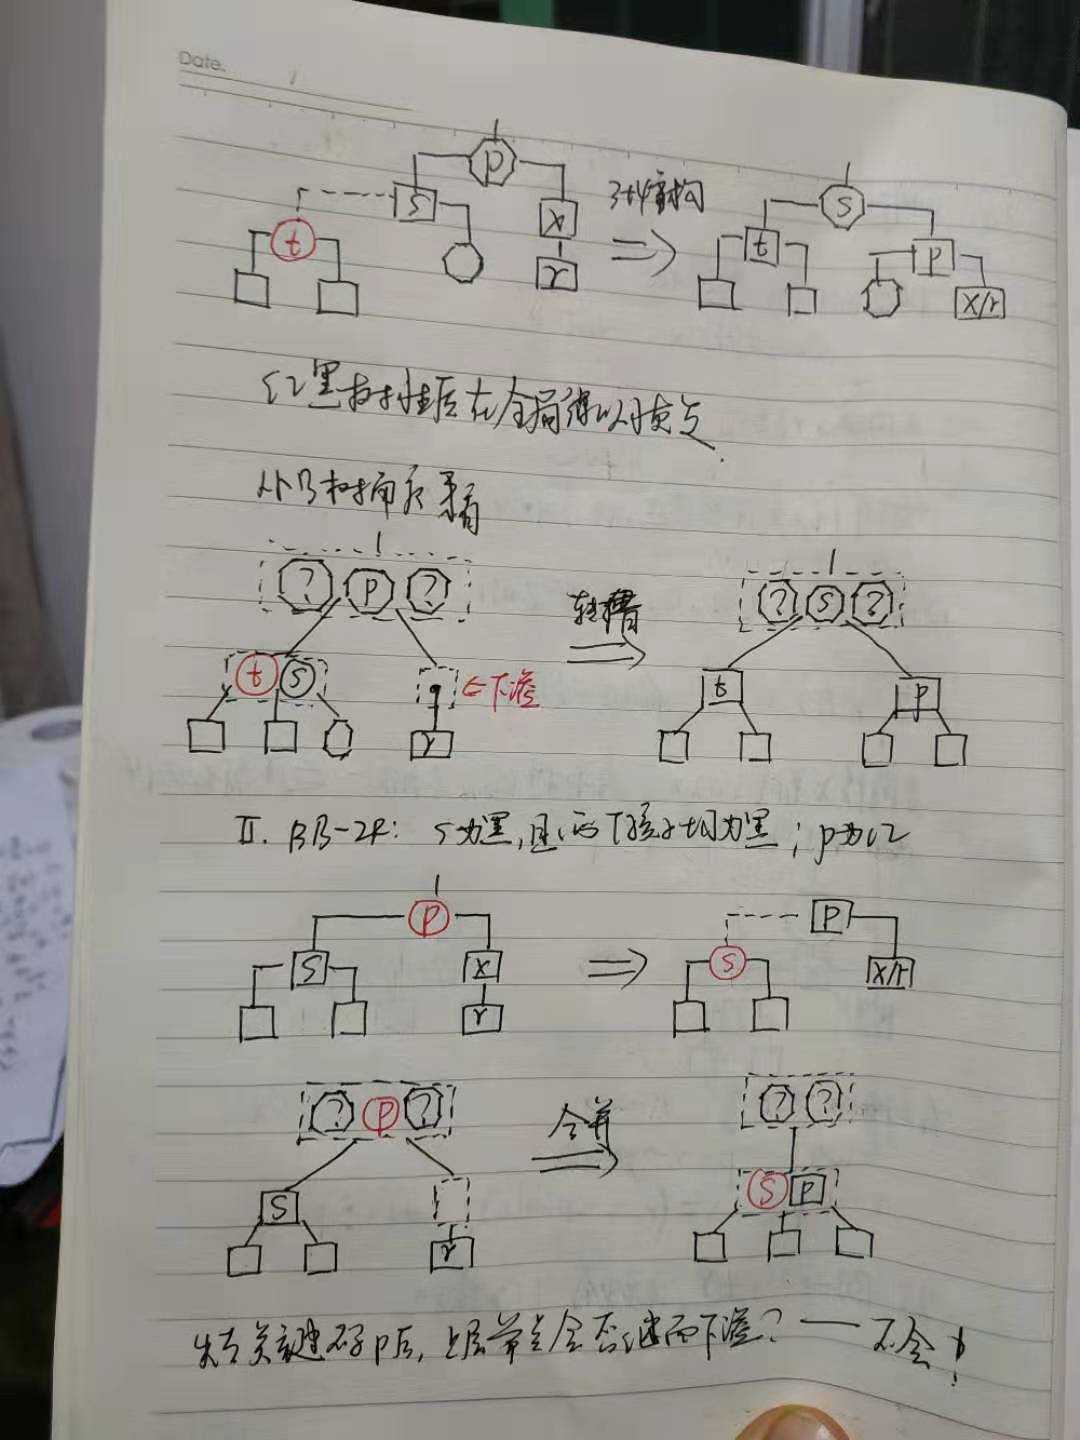 Date.
p
s
t
x
r
3+4重构
⇒
s
t
p
x/r
红黑树性质在全局得以恢复.
从B树角度来看
? p ?
t s
r
←下溢
旋转
⇒
? s ?
t
p
II. BB-2R: s为黑,且两个孩子均为黑;p为红
p
s
x
r
⇒
p
s
x/r
? p ?
s
r
合并
⇒
? ?
s p
失去关键码p后,上层节点会否继而下溢?——不会!